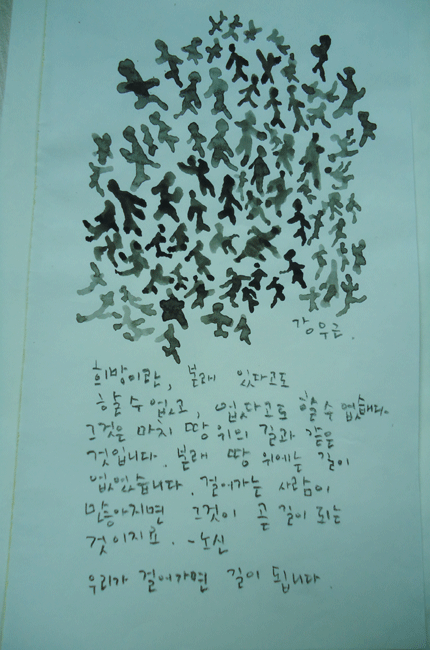 강우근.
희망이란, 본래 있다고도
할 수 없고, 없다고도 할 수 없습니다.
그것은 마치 땅 위의 길과 같은
것입니다. 본래 땅 위에는 길이
없었습니다. 걸어가는 사람이
많아지면 그것이 곧 길이 되는
것이지요. -노신
우리가 걸어가면 길이 됩니다.